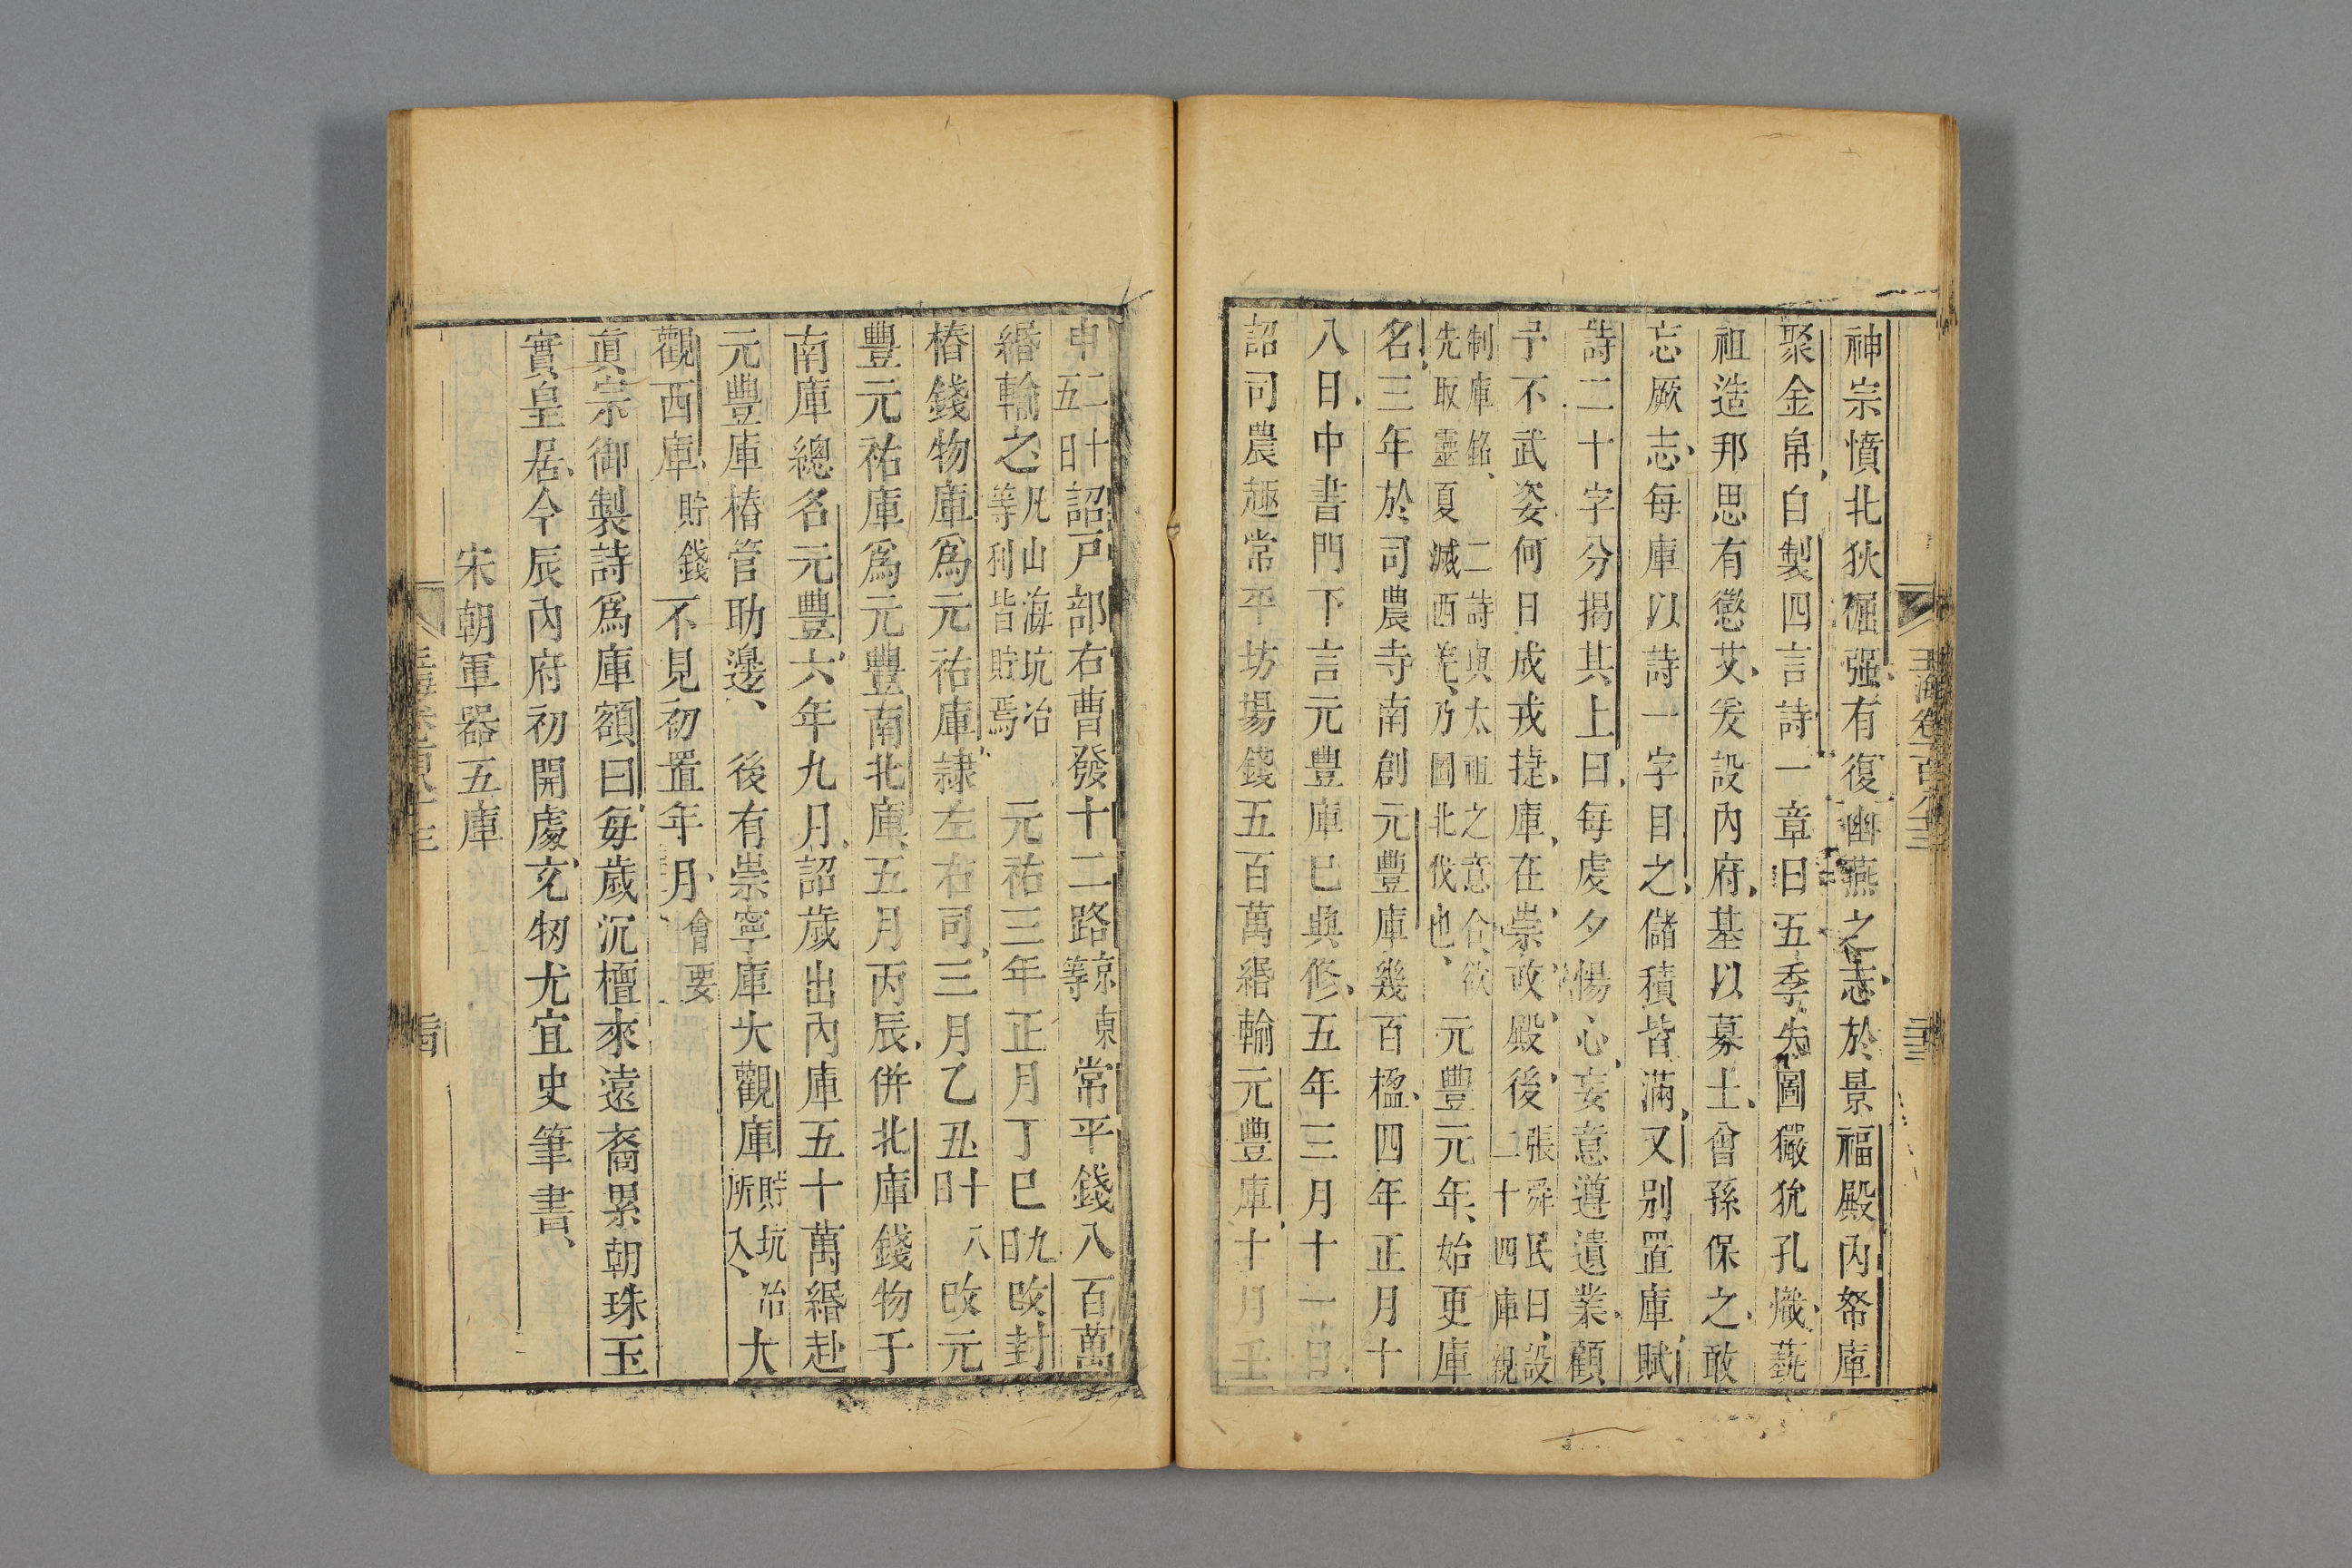 神宗憤北狄倔强有復幽燕之志於景福殿內帑庫
聚金帛自製四言詩一章曰五季失圖玁狁孔熾蓺
祖造邦思有懲艾爰設內府基以募士曾孫保之敢
忘厥志每庫以詩一字目之儲積皆滿又别置庫賦
詩二十字分揭其上曰每虔夕惕心妄意遵遺業顧
予不武姿何日成戎捷庫在崇政殿後張舜民曰設二十四庫觀
制庫銘二詩與太祖之意合欲先取靈夏滅西羌乃圖北伐也元豐元年始更庫
名三年於司農寺南創元豐庫幾百楹四年正月十
八日中書門下言元豐庫已興修五年三月十一日
詔司農趣常平坊場錢五百萬緡輸元豐庫十月壬
申二十五日詔戸部右曹發十二路京東等常平錢八百萬
緡輸之凡山海坑冶等利皆貯焉元祐三年正月丁巳九日改封
樁錢物庫爲元祐庫隷左右司三月乙丑十八日改元
豐元祐庫爲元豐南北庫五月丙辰併北庫錢物于
南庫總名元豐六年九月詔歲出內庫五十萬緡赴
元豐庫樁管助邊後有崇寧庫大觀庫貯坑冶所入大
觀西庫貯錢不見初置年月會要
眞宗御製詩爲庫額曰每歲沉檀來遠裔累朝珠玉
實皇居今辰內府初開處充牣尤宜史筆書
宋朝軍器五庫
玉海卷一百八三